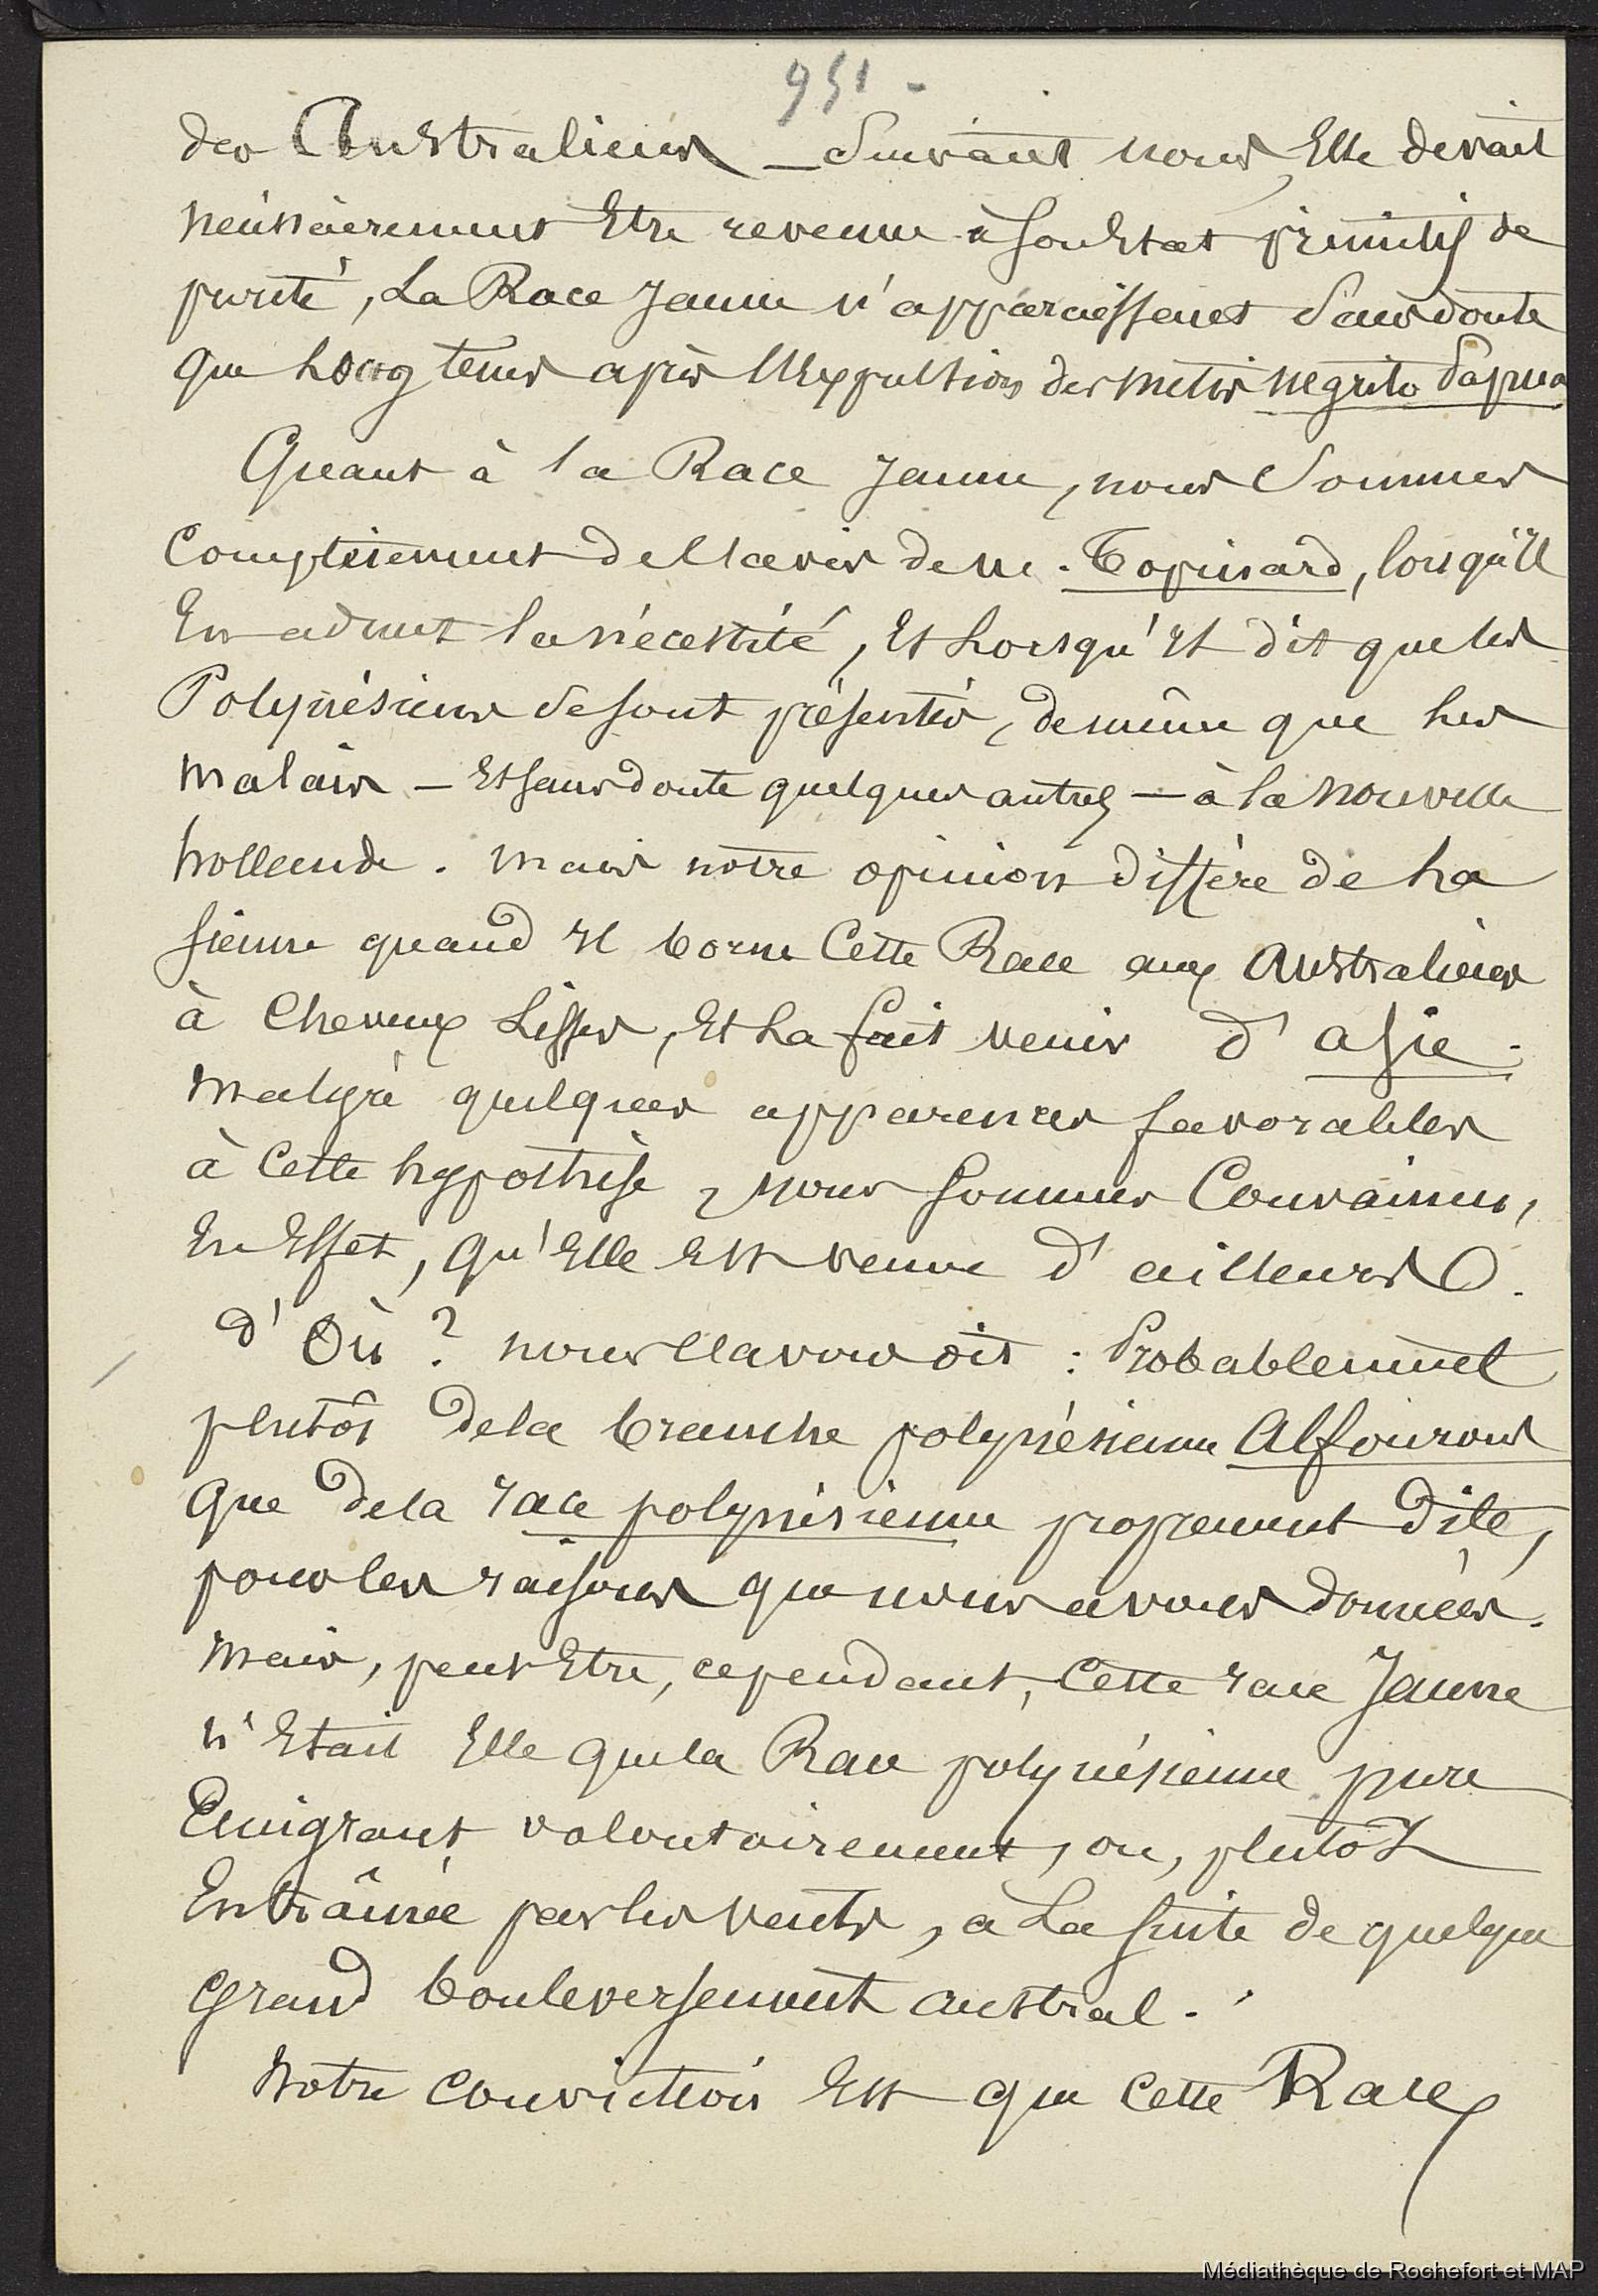 951 -
des Australiens — Suivant nous, Elle devait
nécessairement Etre revenue à son Etat primitif de
pureté, La Race Jaune n'apparaissant Sans doute
que Long tems après l'Expulsion des métis negrito Papua
Quant à la Race Jaune, nous Sommes
Complètement de l'avis de m. Topinard, lorsqu'Il
En admet la nécessité, Et Lorsqu'Il dit que les
Polynésiens se sont présentés, de même que Les
malais — Et sans doute quelques autres — à la nouvelle
hollande. mais notre opinion diffère de La
sienne quand Il borne Cette Race aux Australiens
à Cheveux Lisses, Et La fait venir d'asie.
malgré quelques apparences favorables
à Cette hypothèse, nous sommes Convaincus,
En Effet, qu'Elle Est venue d'ailleurs.
d'Où ? nous l'avons dit : Probablement
plutôt de la branche polynésienne Alfourous
que de la race polynésienne proprement dite,
pour les raisons que nous avons données.
mais, peut Etre, cependant, Cette race Jaune
n'Etait Elle que la Race polynésienne pure
Emigrant volontairement, ou, plutôt
Entraînée par les vents, à La suite de quelque
grand bouleversement austral.
Notre conviction Est que Cette Race
Médiathèque de Rochefort et MAP